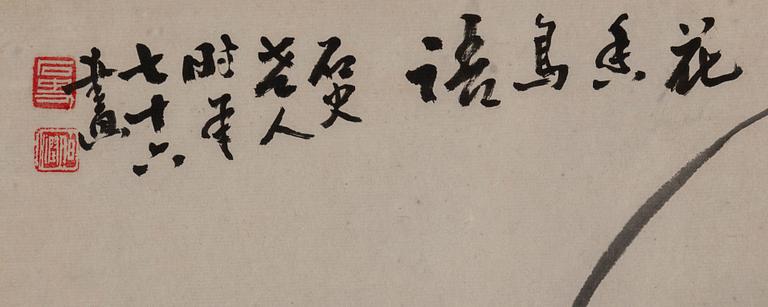 花香鳥語
石史
老人
時年
七十六
畫